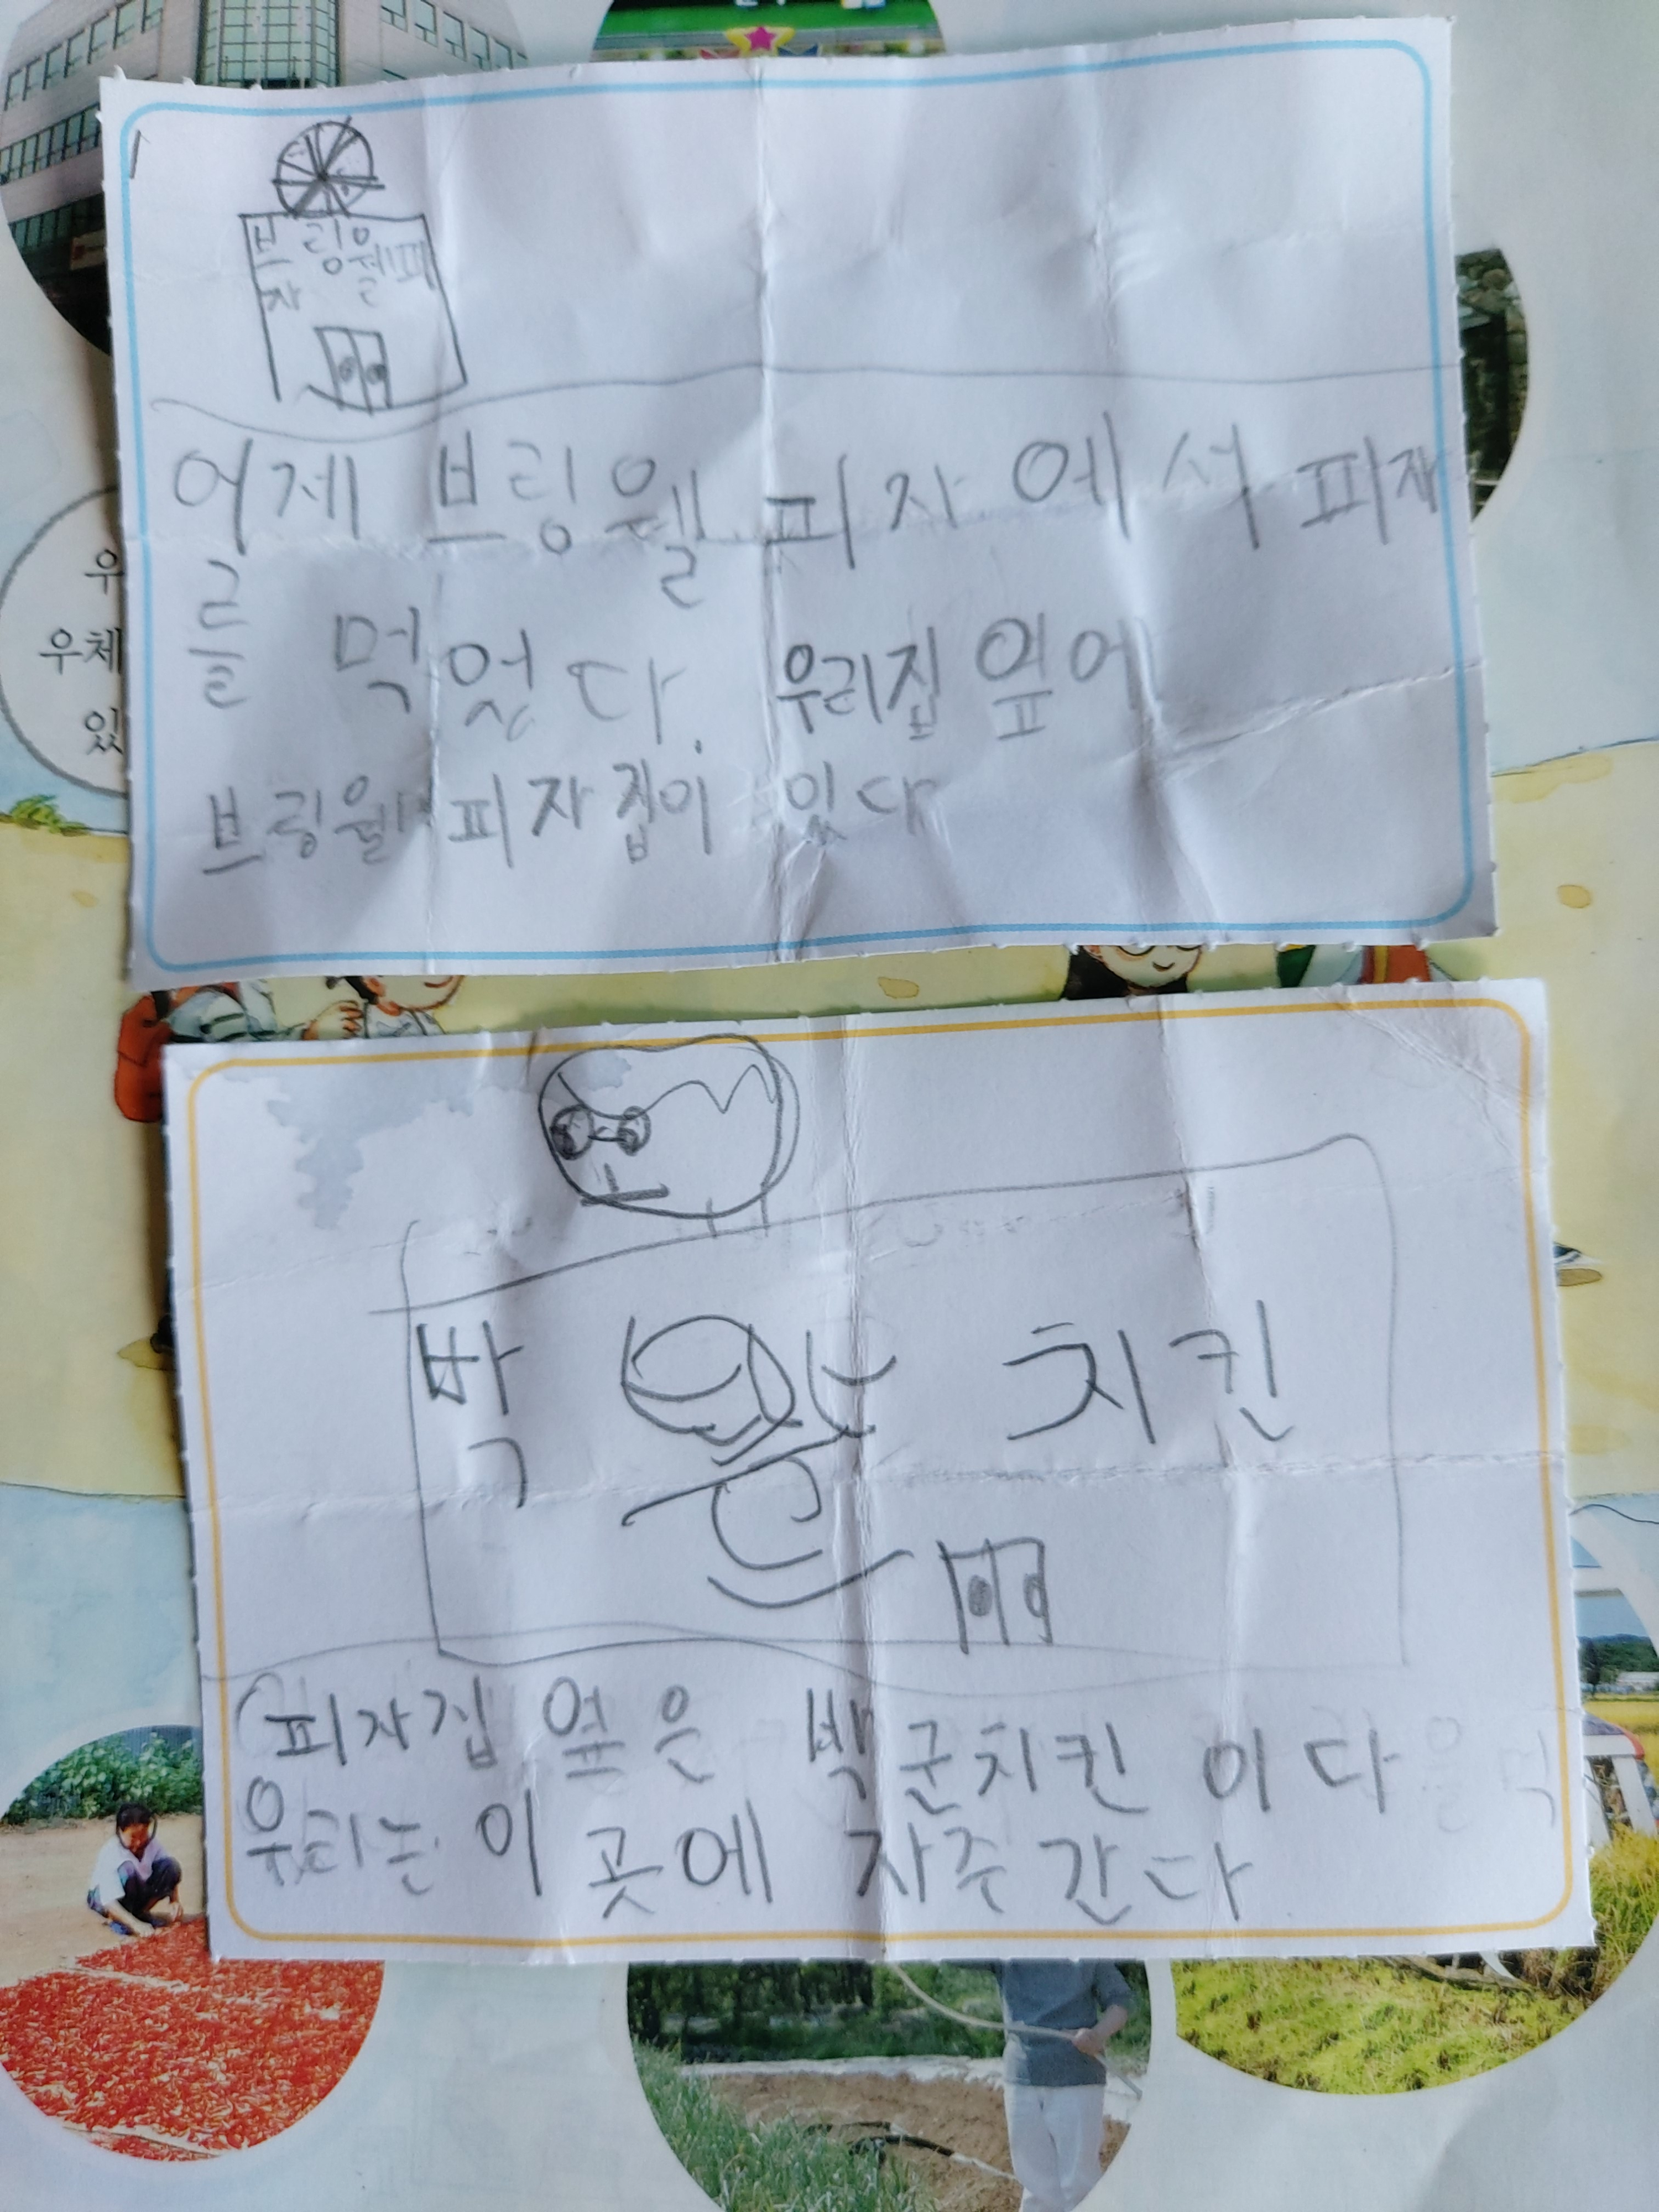 브링웰피
자
어제 브링웰 피자에서 피자
를 먹었다. 우리집 옆에
브링웰 피자집이 있다
박 군 치킨
피자집 옆은 박군치킨 이다
우리는 이 곳에 자주 간다
우
우체
있